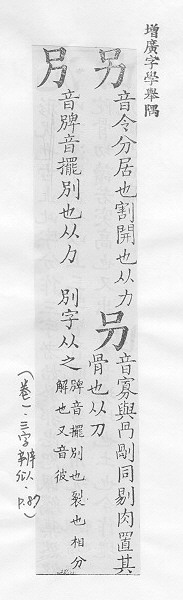 增廣字學舉隅
另音令分居也割開也从力 叧音寡與冎剮同剔肉置其
骨也从刀
叧音牌音擺別也从力 別字从之牌音擺別也裂也相分
解也又音彼
(卷一・三字辨似・P.87)